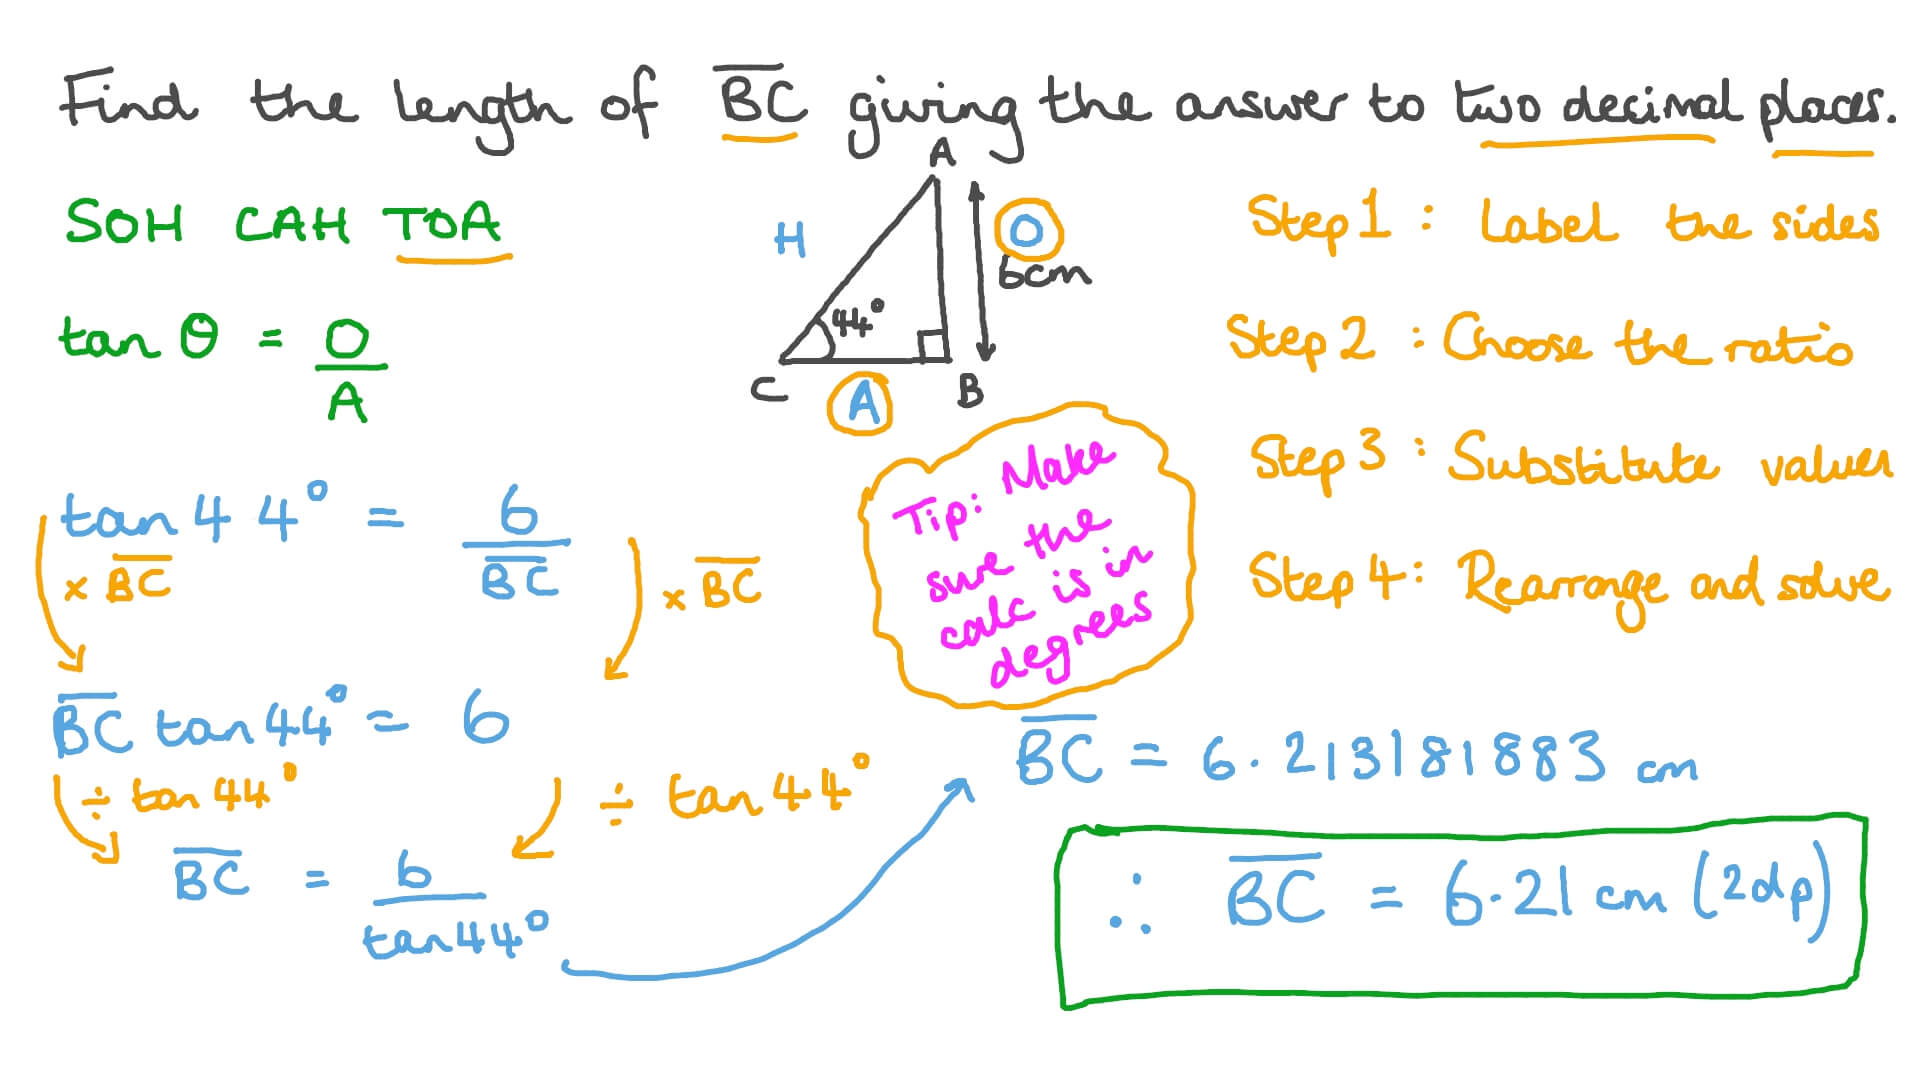 Find the length of B̅C̅ giving the answer to two decimal places.
SOH CAH TOA
tan θ = O/A
A
H
O
6cm
44°
C
A
B
Step 1 : Label the sides
Step 2 : Choose the ratio
Step 3 : Substitute values
Step 4 : Rearrange and solve
Tip: Make
sure the
calc is in
degrees
tan 44° = 6/B̅C̅
× B̅C̅
× B̅C̅
B̅C̅ tan 44° = 6
÷ tan 44°
÷ tan 44°
B̅C̅ = 6/tan 44°
B̅C̅ = 6.213181883 cm
∴ B̅C̅ = 6.21 cm (2dp)